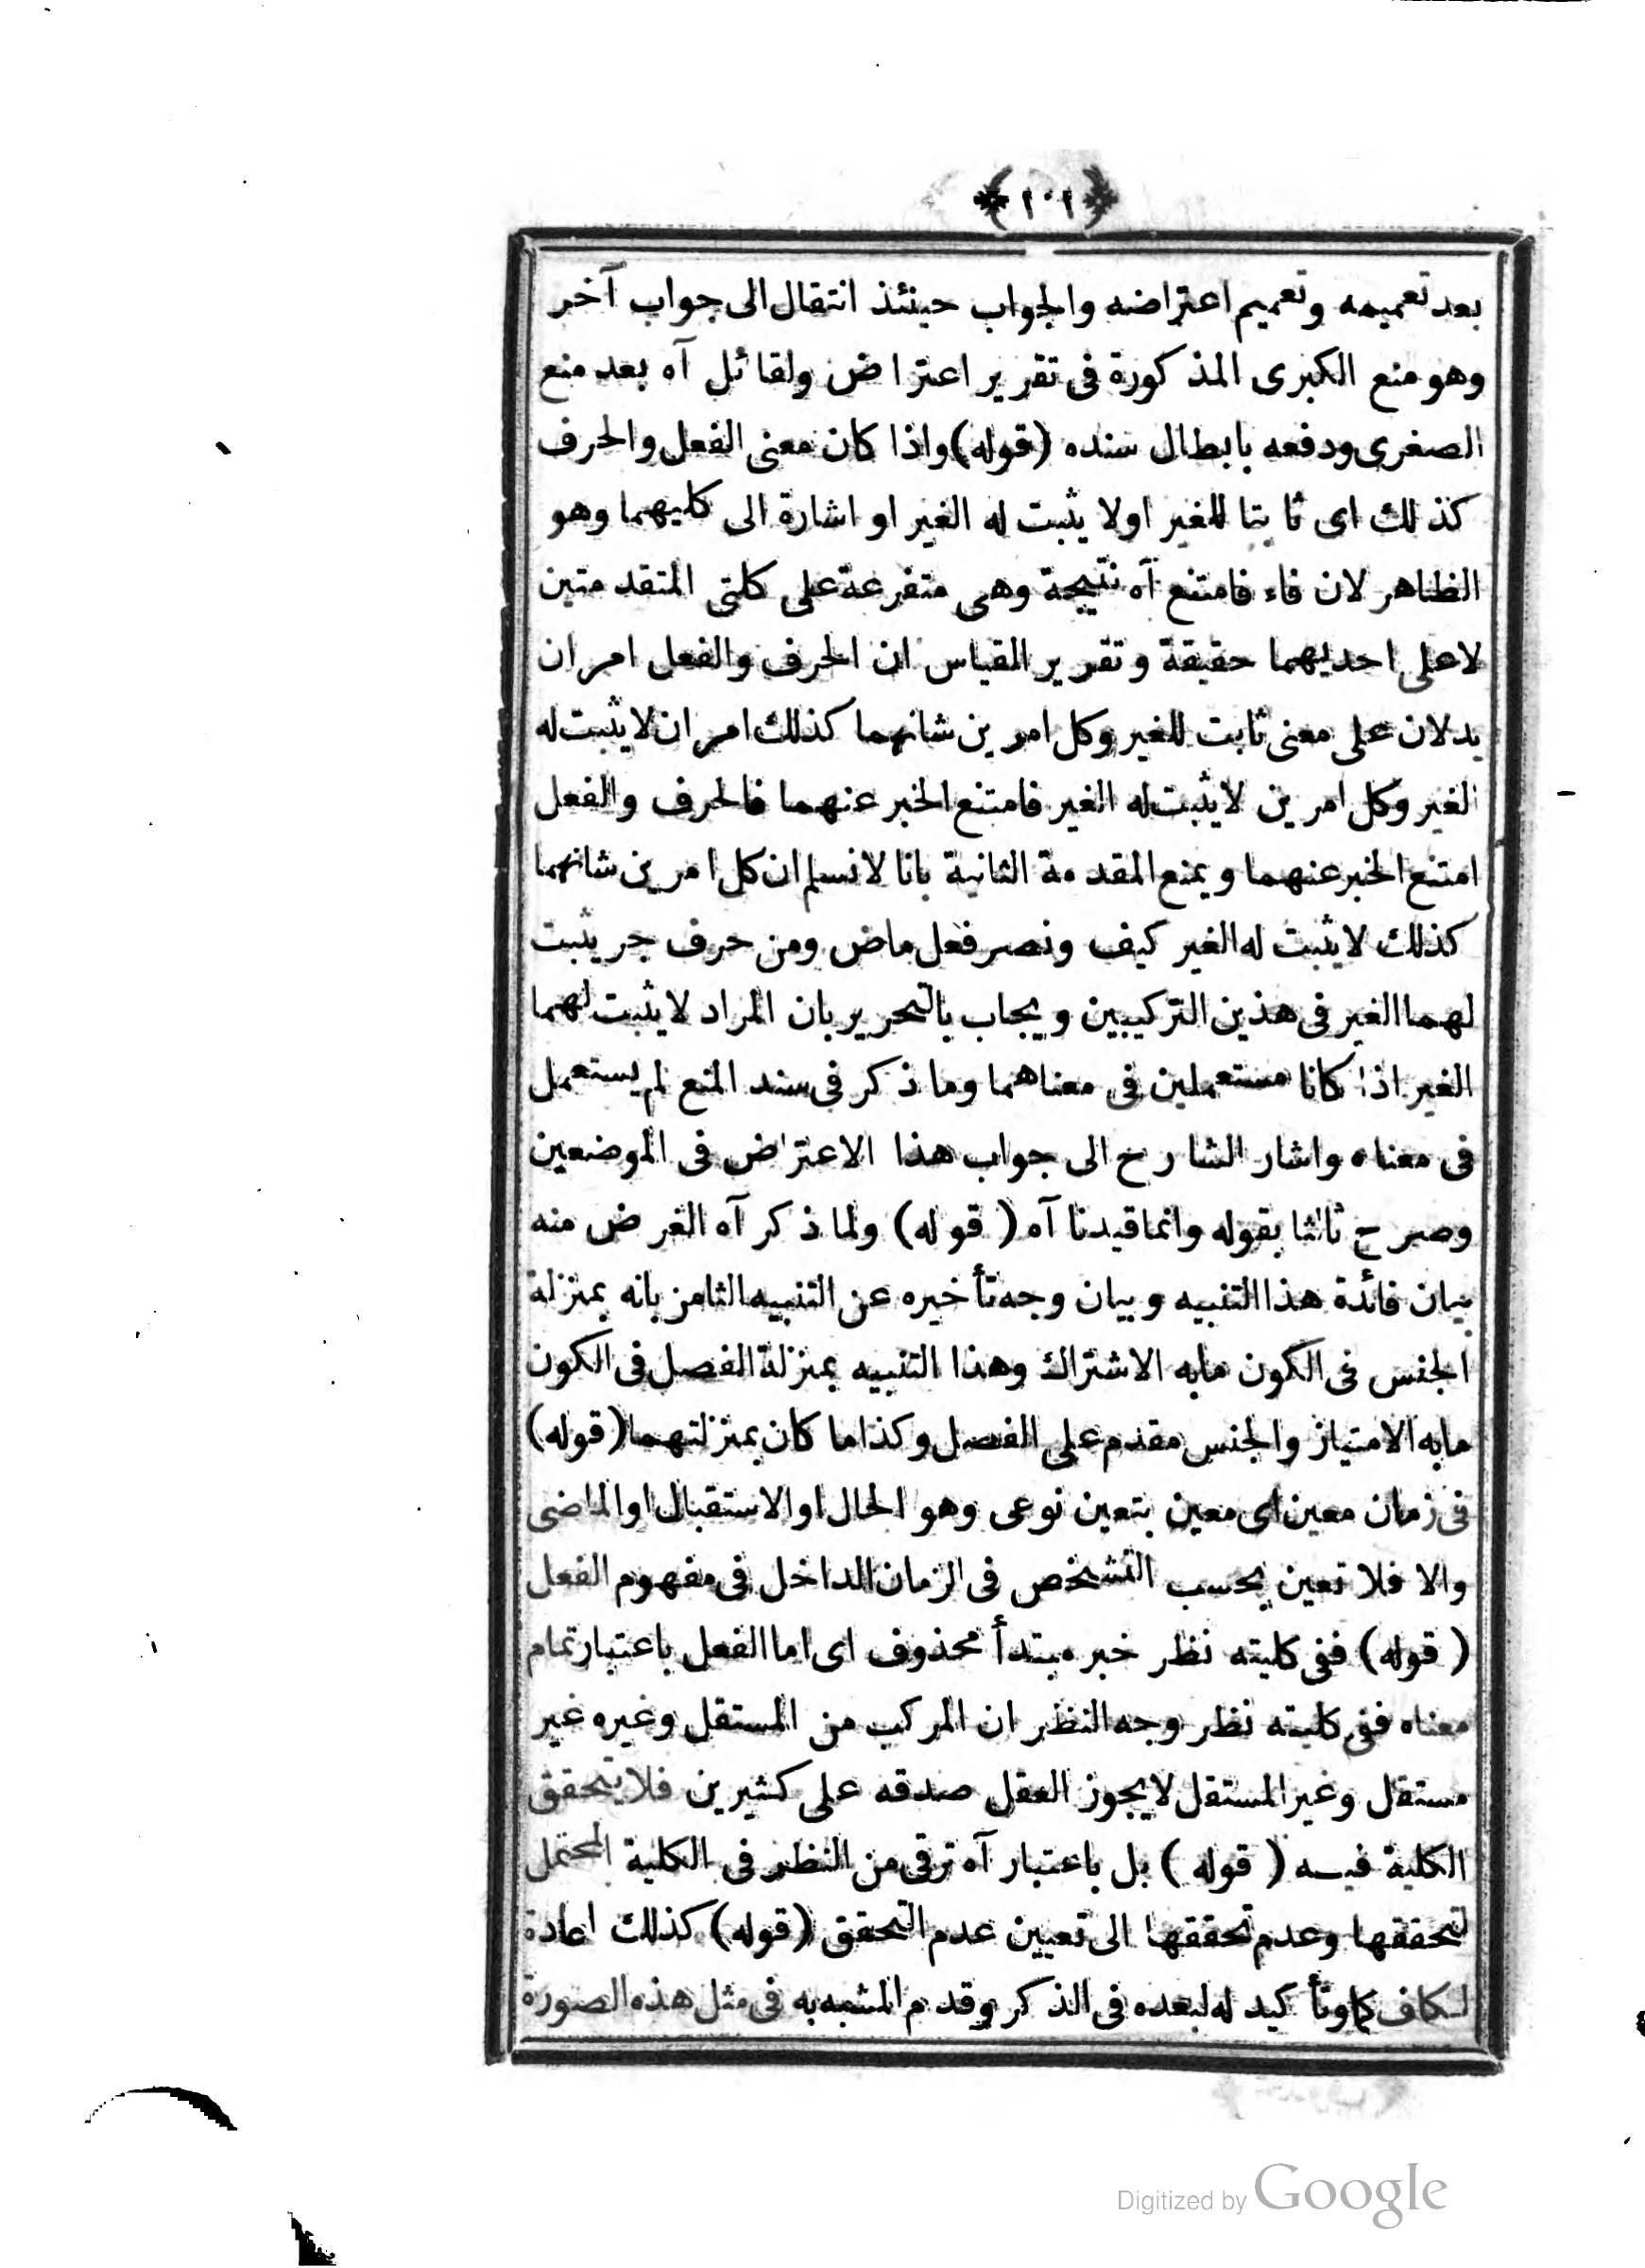 ﴿ ١٠١ ﴾
بعد تعميمه وتعميم اعتراضه والجواب حينئذ انتقال الى جواب آخر
وهو منع الكبرى المذكورة فى تقرير اعتراض ولقائل آه بعد منع
الصغرى ودفعه بابطال سنده (قوله) واذا كان معنى الفعل والحرف
كذلك اى ثابتا للغير اولا يثبت له الغير او اشارة الى كليهما وهو
الظاهر لان فاء فامتنع آه نتيجة وهى متفرعة على كلتى المتقدمتين
لا على احديهما حقيقة وتقرير القياس ان الحرف والفعل امران
يدلان على معنى ثابت للغير وكل امرين شانهما كذلك امران لا يثبت له
الغير وكل امرين لا يثبت له الغير فامتنع الخبر عنهما فالحرف والفعل
امتنع الخبر عنهما ويمنع المقدمة الثانية بانا لا نسلم ان كل امرين شانهما
كذلك لا يثبت له الغير كيف ونصر فعل ماض ومن حرف جر يثبت
لهما الغير فى هذين التركيبين ويجاب بالتحرير بان المراد لا يثبت لهما
الغير اذا كانا مستعملين فى معناهما وما ذكر فى سند المنع لم يستعمل
فى معناه واشار الشارح الى جواب هذا الاعتراض فى الموضعين
وصرح ثالثا بقوله وانما قيدنا آه (قوله) ولما ذكر آه الغرض منه
بيان فائدة هذا التنبيه وبيان وجه تأخيره عن التنبيه الثامن بانه بمنزلة
الجنس فى الكون ما به الاشتراك وهذا التنبيه بمنزلة الفصل فى الكون
ما به الامتياز والجنس مقدم على الفصل وكذا ما كان بمنزلتهما (قوله)
فى زمان معين اى معين بتعين نوعى وهو الحال او الاستقبال او الماضى
والا فلا تعين بحسب التشخص فى الزمان الداخل فى مفهوم الفعل
(قوله) ففى كليته نظر خبر مبتدأ محذوف اى اما الفعل باعتبار تمام
معناه ففى كليته نظر وجه النظر ان المركب من المستقل وغيره غير
مستقل وغير المستقل لا يجوز العقل صدقه على كثيرين فلا يتحقق
الكلية فيه (قوله) بل باعتبار آه ترقى من النظر فى الكلية المحتمل
لتحققها وعدم تحققها الى تعيين عدم التحقق (قوله) كذلك اعادة
لكاف كما وتأكيد له لبعده فى الذكر وقدم المشبه به فى مثل هذه الصورة
Digitized by Google